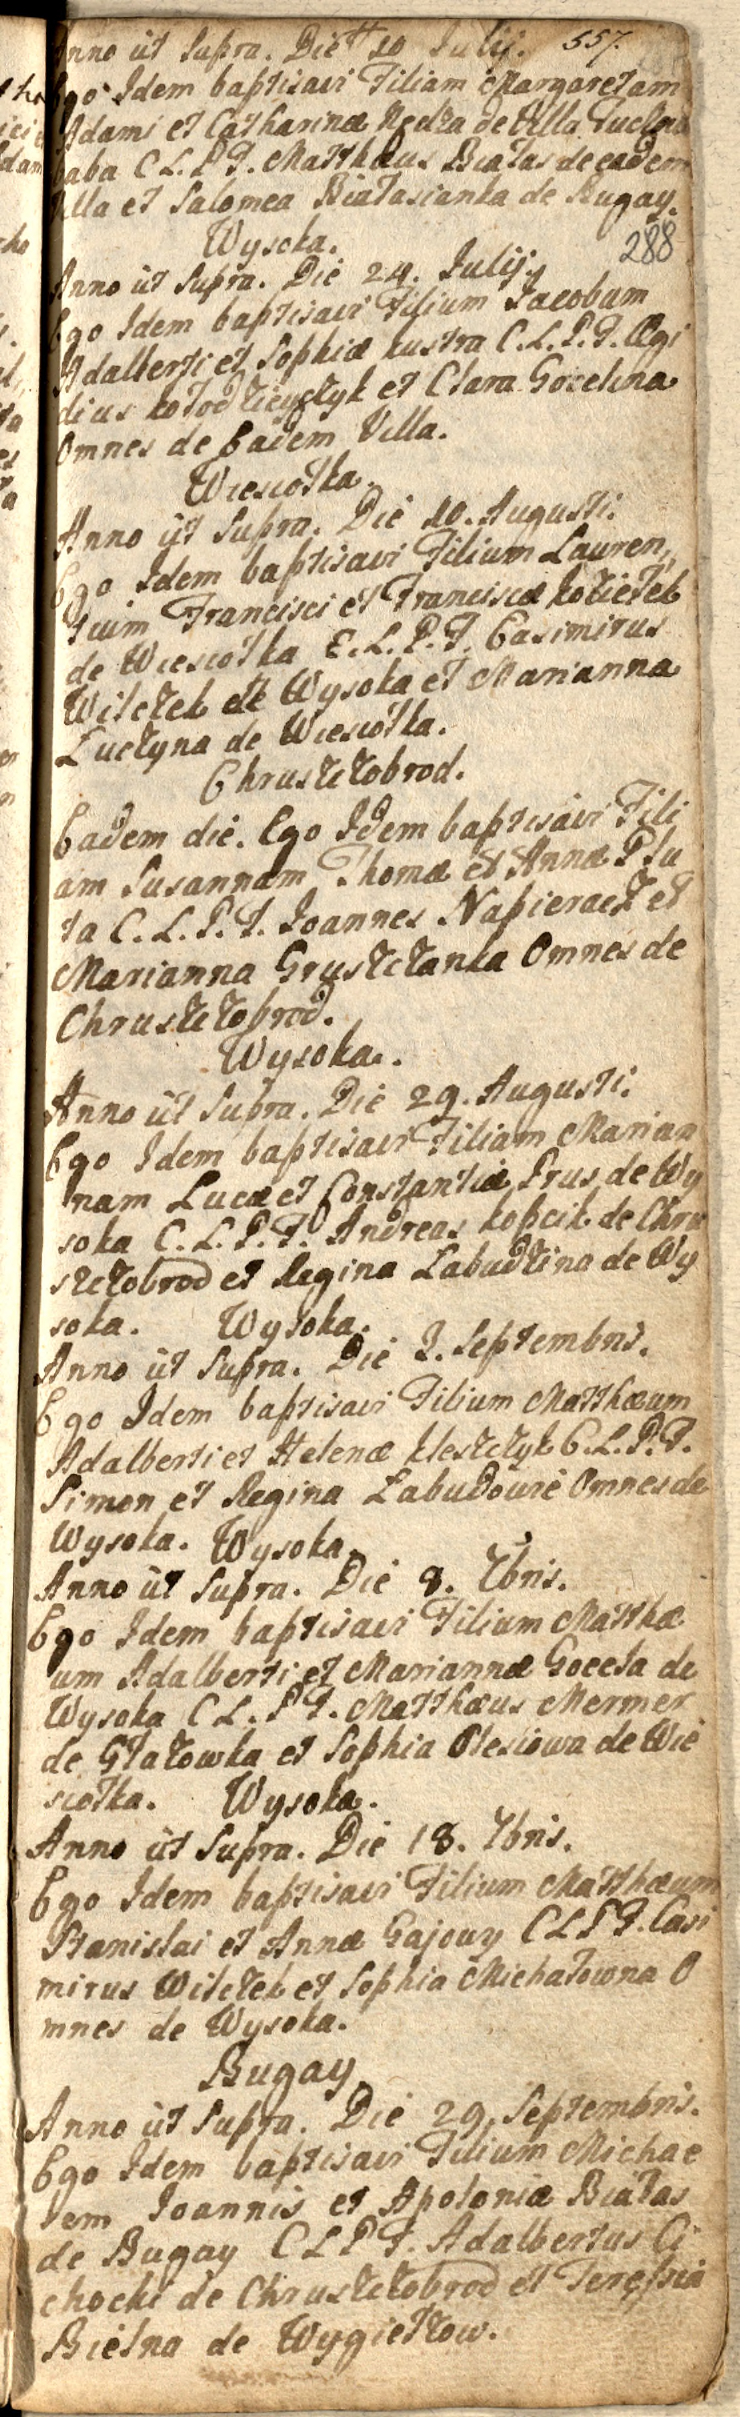 Anno ut supra. Die 10 Julij. 557.
Ego Idem baptisavi Filiam Margaretam
Adami et Catharinæ de Villa
baba C.L.P.F. Matthæus Białas de eadem
Villa et Salomea Białasianka de Bugay.
288
Wysoka.
Anno ut supra. Die 24. Julij.
Ego Idem baptisavi Filium Jacobum
Adalberti et Sophiæ kustra C.L.P.F. Ægi
dius kołodzieyczyk et Clara Gocelina
Omnes de Eadem Villa.
Wiesiołka.
Anno ut supra. Die 10. Augusti.
Ego Idem baptisavi Filium Lauren,,
tium Francisci et Franciscæ koziełek
de Wiesiołka C.L.P.F. Casimirus
Wilczek de Wysoka et Marianna
Luczyna de Wiesiołka.
Chruszczobrod.
Eadem die. Ego Idem baptisavi Fili
am Susannam Thomæ et Annæ Plu
ta C.L.P.F. Joannes Napieracz et
Marianna Gruszczanka Omnes de
Chruszczobrod.
Wysoka.
Anno ut supra. Die 29. Augusti.
Ego Idem baptisavi Filiam Marian
nam Lucæ et Constantiæ Prus de Wy
soka C.L.P.F. Andreas kopcik de Chru
szczobrod et Regina Labudzina de Wy
soka. Wysoka.
Anno ut supra. Die 3. Septembris.
Ego Idem baptisavi Filium Matthæum
Adalberti et Helenæ kleszczyk C.L.P.F.
Simon et Regina Labudowie Omnes de
Wysoka. Wysoka.
Anno ut supra. Die 8. 7bris.
Ego Idem baptisavi Filium Matthæ
um Adalberti et Mariannæ Goceła de
Wysoka C.L.P.F. Matthæus Mermer
de Głazowka et Sophia Olesiowa de Wie
siołka. Wysoka.
Anno ut supra. Die 18. 7bris.
Ego Idem baptisavi Filium Matthæum
Stanislai et Annæ Gajowy C L P F. Casi
mirus Wilczek et Sophia Michałowna O
mnes de Wysoka.
Bugay
Anno ut supra. Die 29. Septembris.
Ego Idem baptisavi Filium Michae
lem Joannis et Apoloniæ Białas
de Bugay C L P F. Adalbertus Ci
chocki de Chruszczobrod et Teressia
Bielna de Wygiełzow.